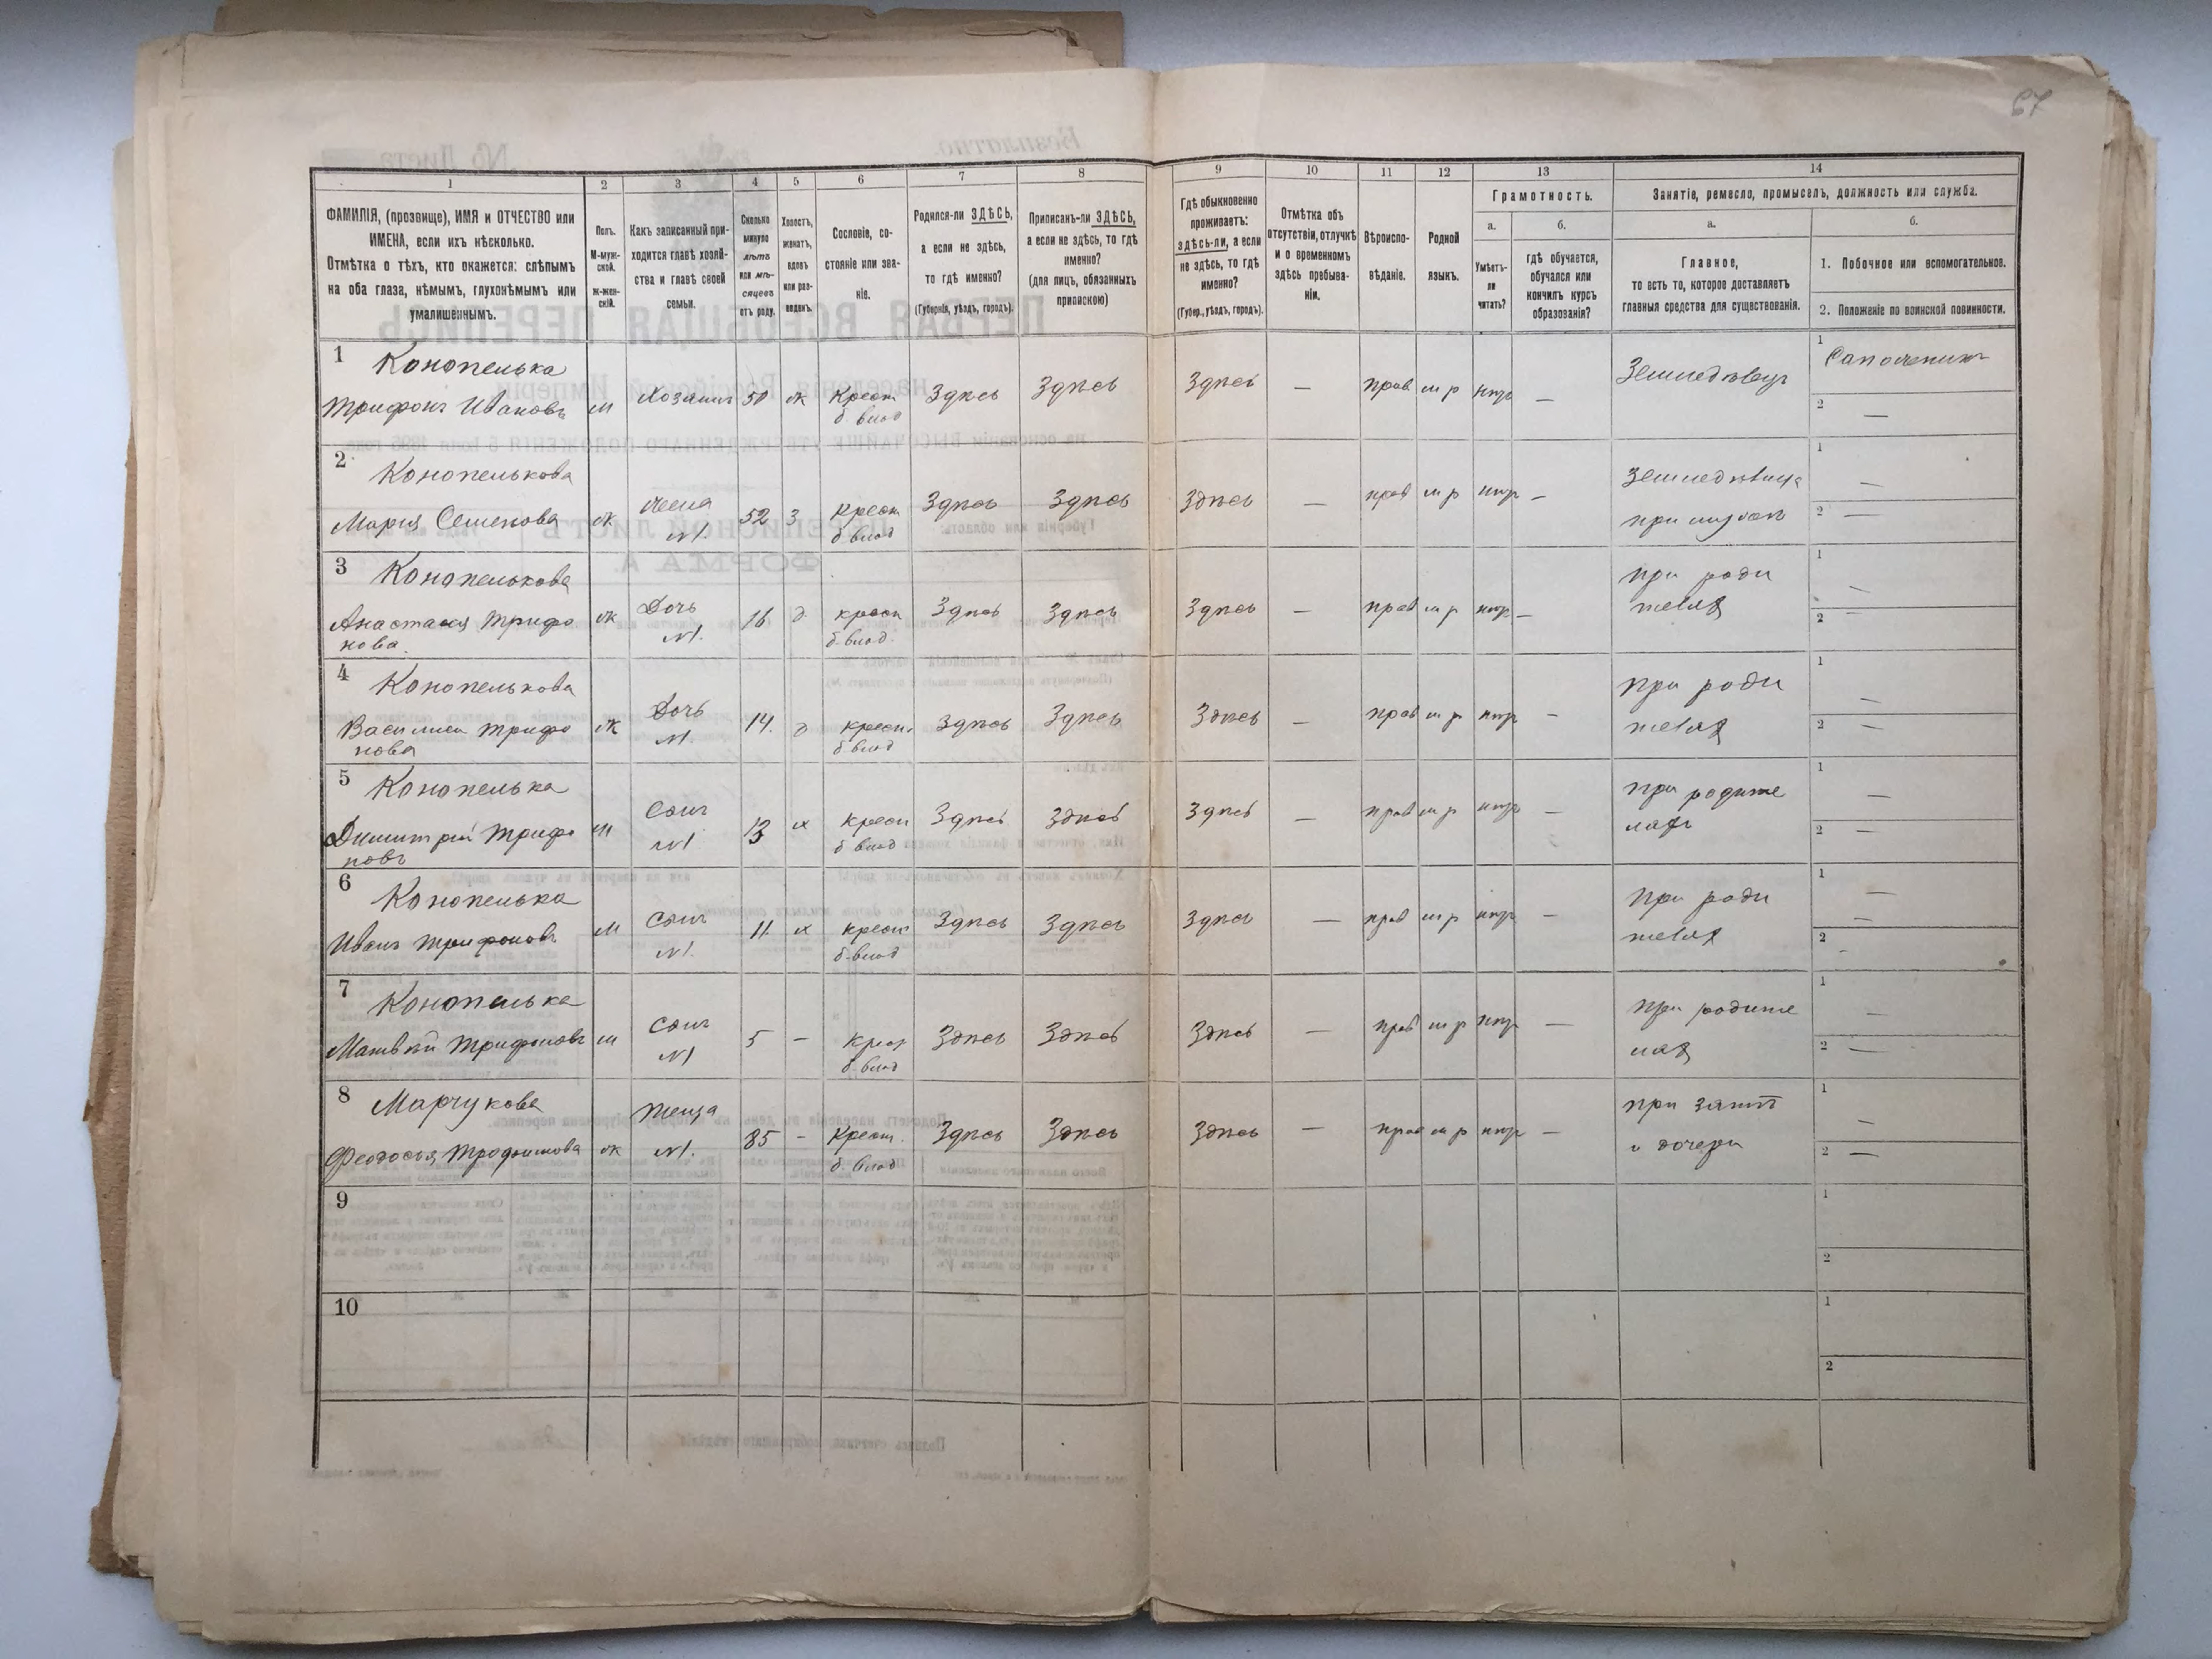 67
1
2
3
4
5
6
7
8
9
10
11
12
13
14
ФАМИЛІЯ, (прозвище), ИМЯ и ОТЧЕСТВО или
ИМЕНА, если ихъ нѣсколько.
Отмѣтка о тѣхъ, кто окажется: слѣпымъ
на оба глаза, нѣмымъ, глухонѣмымъ или
умалишеннымъ.
Полъ.
М-муж-
ской.
ж-жен-
скій.
Какъ записанный при-
ходится главѣ хозяй-
ства и главѣ своей
семьи.
Сколько
минуло
лѣтъ
или мѣ-
сяцевъ
отъ роду.
Холостъ,
женатъ,
вдовъ
или раз-
веденъ.
Сословіе, со-
стояніе или зва-
ніе.
Родился-ли ЗДѢСЬ,
а если не здѣсь,
то гдѣ именно?
(Губернія, уѣздъ, городъ).
Приписанъ-ли ЗДѢСЬ,
а если не здѣсь, то гдѣ
именно?
(для лицъ, обязанныхъ
припискою)
Гдѣ обыкновенно
проживаетъ:
здѣсь-ли, а если
не здѣсь, то гдѣ
именно?
(Губер., уѣздъ, городъ).
Отмѣтка объ
отсутствіи, отлучкѣ
и о временномъ
здѣсь пребыва-
ніи.
Вѣроиспо-
вѣданіе.
Родной
языкъ.
Грамотность.
а.
б.
Умѣетъ-
ли
читать?
гдѣ обучается,
обучался или
кончилъ курсъ
образованія?
Занятіе, ремесло, промыселъ, должность или служба.
а.
б.
Главное,
то есть то, которое доставляетъ
главныя средства для существованія.
1. Побочное или вспомогательное.
2. Положеніе по воинской повинности.
1 Конопелька
Трифонъ Ивановъ м Хозяинъ 50 ж Крест Здѣсь Здѣсь Здѣсь — прав м р нгр —
б. влад
1
2 —
2 Конопелькова
Мария Семенова ж жена 52 з крест Здѣсь Здѣсь Здѣсь — прав м р нгр —
№1. б. влад
при мужѣ
1 —
2 —
3 Конопелькова
Анастасия Трифо ж Дочь 16 д крест Здѣсь Здѣсь Здѣсь — прав м р нгр —
нова. №1. б. влад.
при роди
теляхъ
1 —
2 —
4 Конопелькова
Василиса Трифо ж Дочь 14. д крест. Здѣсь Здѣсь Здѣсь — прав м р нгр —
нова №1. б. влад
при роди
теляхъ
1 —
2 —
5 Конопелька
Димитрій Трифо м Сынъ 13 х крест Здѣсь Здѣсь Здѣсь — прав м р нгр —
новъ №1 б влад
при родите
ляхъ
1 —
2 —
6 Конопелька
Иванъ Трифоновъ м Сынъ 11. х крест Здѣсь Здѣсь Здѣсь — прав м р нгр —
№1. б. влад
при роди
теляхъ
1 —
2 —
7 Конопелька
Матвѣй Трифоновъ м Сынъ 5 — крест Здѣсь Здѣсь Здѣсь — прав м р нгр —
№1 б. влад
при родите
ляхъ
1 —
2 —
8 Марчукова
Феодосья Трофимова ж Теща 85 — Крест. Здѣсь Здѣсь Здѣсь — прав м р нгр —
№1. б. влад
при зятѣ
и дочери
1 —
2 —
9
1
2
10
1
2